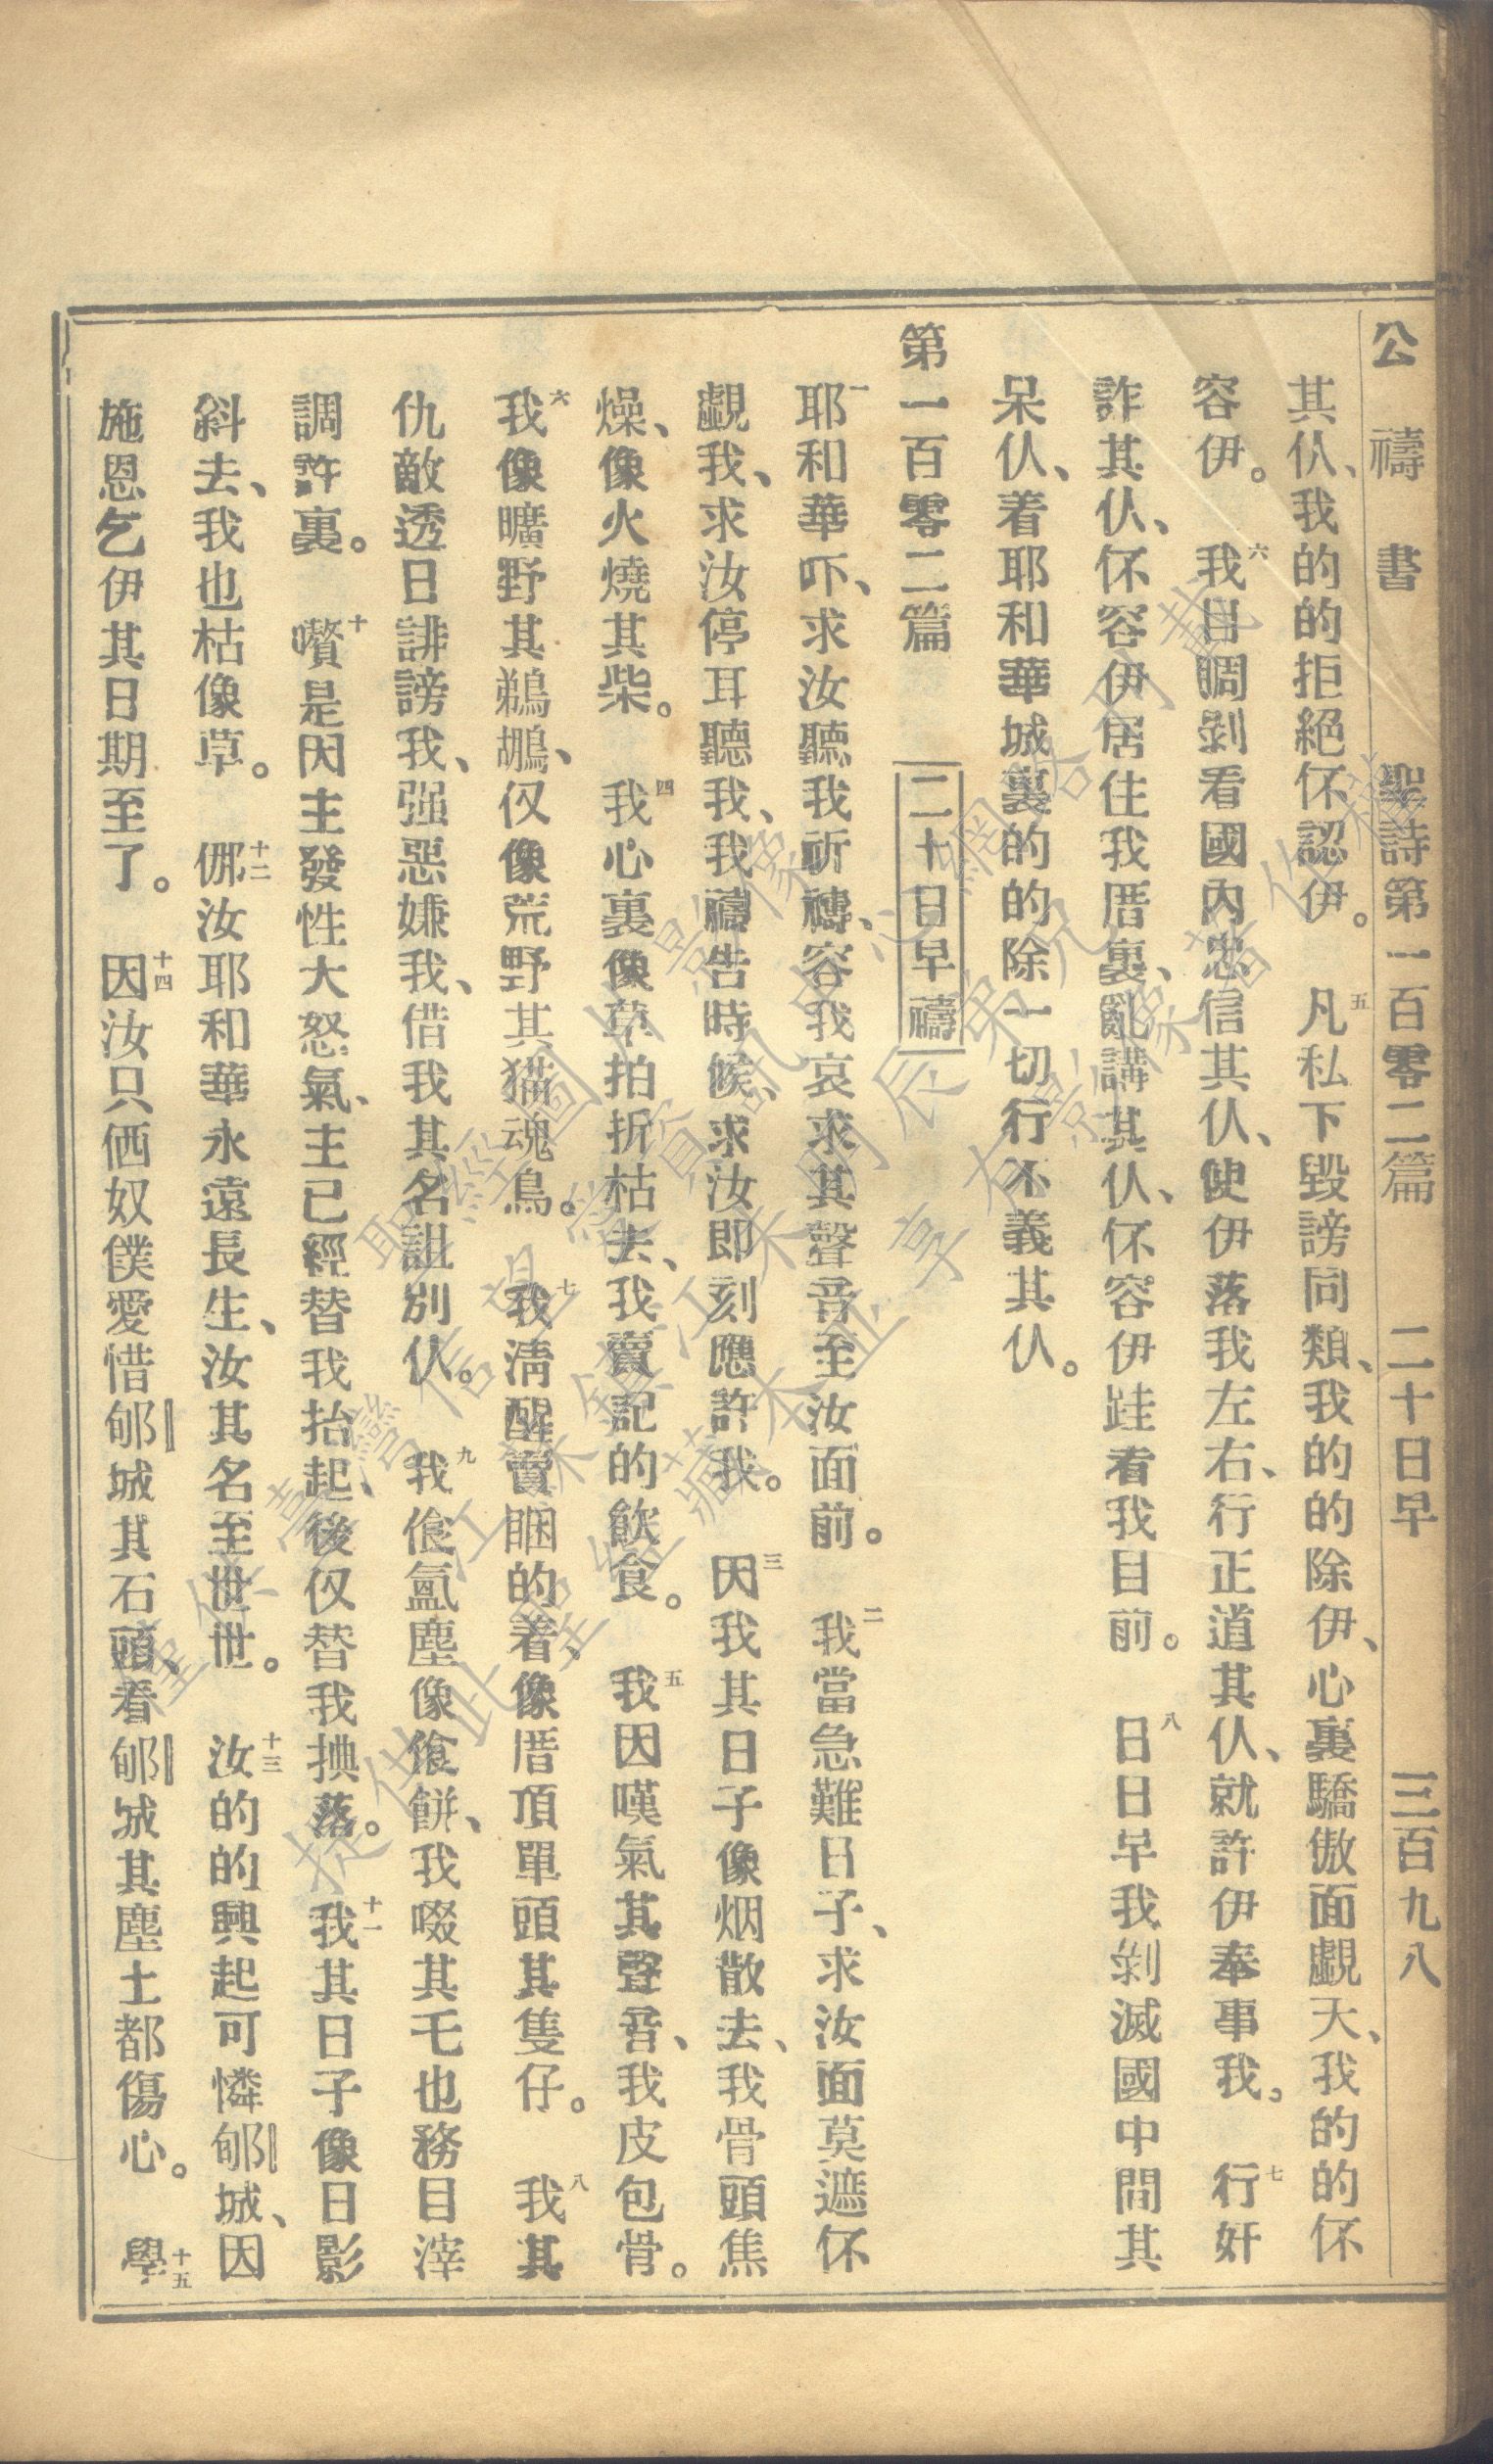 公禱書 聖詩第一百零二篇 二十日早 三百九八
其仈、我的的拒絕伓認伊。五凡私下毀謗同類、我的的除伊、心裏驕傲面覷天、我的的伓
容伊。六我目睭剝看國內忠信其仈、使伊落我左右、行正道其仈、就許伊奉事我。七行奸
詐其仈、伓容伊居住我厝裏、亂講其仈、伓容伊跬看我目前。八日日早我剝滅國中間其
呆仈、着耶和華城裏的的除一切行不義其仈。
第一百零二篇 二十日早禱
一耶和華吓、求汝聽我祈禱、容我哀求其聲音至汝面前。二我當急難日子、求汝面莫遮伓
覷我、求汝停耳聽我、我禱告時候、求汝即刻應許我。三因我其日子像烟散去、我骨頭焦
燥、像火燒其柴。四我心裏像草拍折枯去、我賣記的飲食。五我因嘆氣其聲音、我皮包骨。
六我像曠野其鵜鶘、仅像荒野其猫魂鳥。七我淸醒賣睏的着、像厝頂單頭其隻仔。八我其
仇敵透日誹謗我、强惡嫌我、借我其名詛別仈。九我飱氲塵像飱餅、我啜其乇也務目滓
調許裏。十囋是因主發性大怒氣、主已經替我抬起、後仅替我㧣落。十一我其日子像日影
斜去、我也枯像草。十二㑚汝耶和華永遠長生、汝其名至世世。十三汝的的興起可憐郇城、因
施恩乞伊其日期至了。十四因汝只価奴僕愛惜郇城其石頭、看郇城其塵土都傷心。十五學
聖經圖片影像
僅供臺灣信望愛資訊中心網路刊載
江蘇鎮江朱明辰弟兄
提供此聖經藏本並享有影像著作權